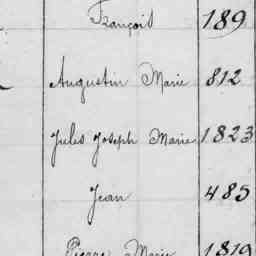 François 189
Augustin Marie 812
Jules Joseph Marie 1823
Jean 485
Pierre Marie 1819